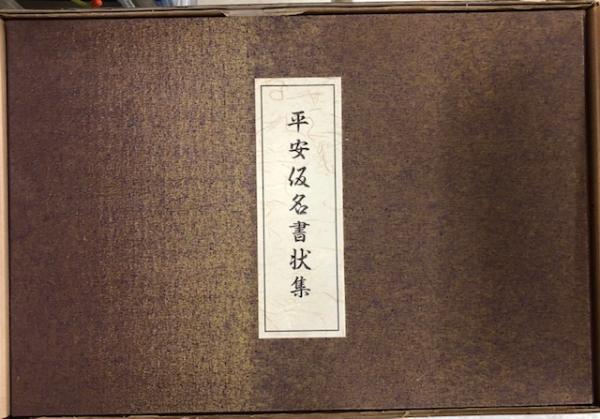 平安仮名書状集